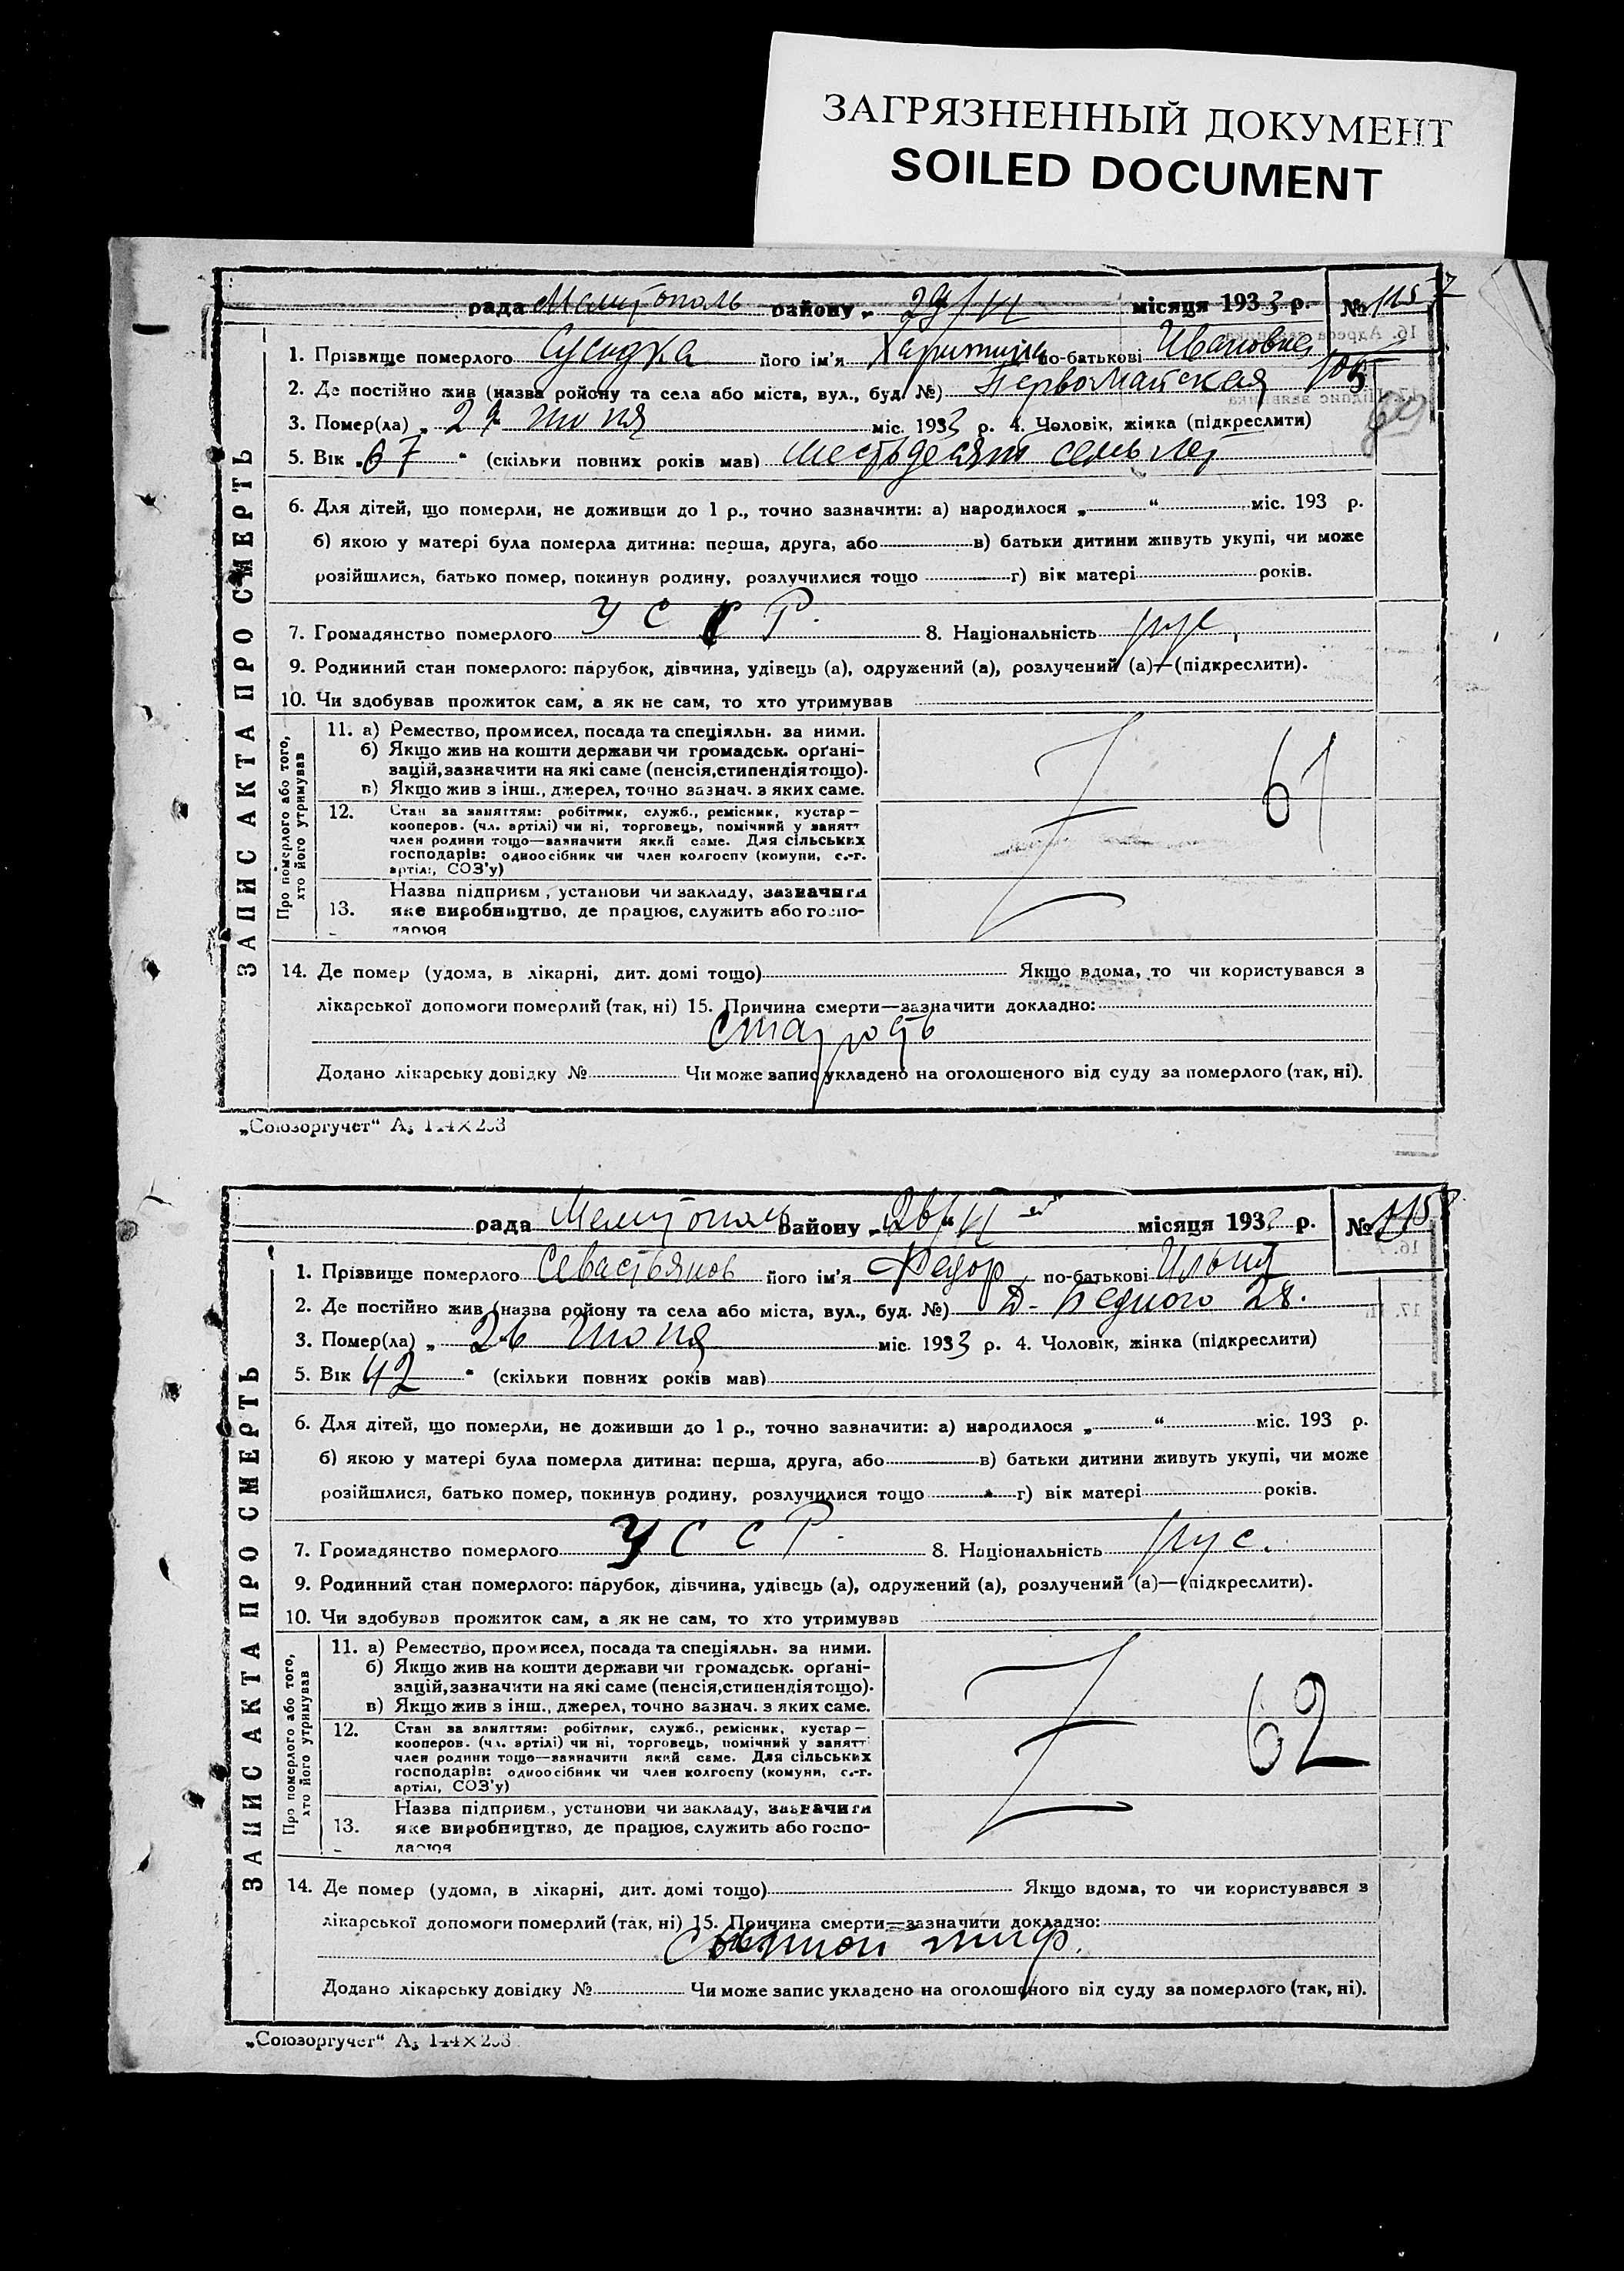 ЗАГРЯЗНЕННЫЙ ДОКУМЕНТ
SOILED DOCUMENT
рада Мелитополь району „ 29/VI місяця 1933 р. № 1157
1. Прізвище померлого його ім'я Харитина по-батькові Ивановна
2. Де постійно жив (назва ройону та села або міста, вул., буд. №) Первомайская 105
3. Помер(ла) „ 29 июня міс. 1933 р. 4. Чоловік, жінка (підкреслити)
5. Вік „67 “ (скільки повних років мав) шестьдесят семь лет
6. Для дітей, що померли, не доживши до 1 р., точно зазначити: а) народилося „ “ міс. 193 р.
б) якою у матері була померла дитина: перша, друга, або в) батьки дитини живуть укупі, чи може
розійшлися, батько помер, покинув родину, розлучилися тощо г) вік матері років.
7. Громадянство померлого УССР. 8. Національність рус.
9. Родинний стан померлого: парубок, дівчина, удівець (а), одружений (а), розлучений (а)—(підкреслити).
10. Чи здобував прожиток сам, а як не сам, то хто утримував
ЗАПИС АКТА ПРО СМЕРТЬ
Про померлого або того,
хто його утримував
11. а) Ремество, промисел, посада та спеціяльн. за ними.
б) Якщо жив на кошти держави чи громадськ. орґані-
зацій, зазначити на які саме (пенсія, стипендія тощо).
в) Якщо жив з інш., джерел, точно зазнач. з яких саме.
61
12. Стан за заняттям: робітник, служб., ремісник, кустар—
кооперов. (чл. артілі) чи ні, торговець, помічний у занятт
член родини тощо—зазначити який саме. Для сільських
господарів: одноосібник чи член колгоспу (комуни, с.-г.
артілі, СОЗ'у)
Назва підприєм., установи чи закладу, зазначити
13. яке виробництво, де працює, служить або госпо-
дарює
14. Де помер (удома, в лікарні, дит. домі тощо) Якщо вдома, то чи користувався з
лікарської допомоги померлий (так, ні) 15. Причина смерти—зазначити докладно:
старость
Додано лікарську довідку № Чи може запис укладено на оголошеного від суду за померлого (так, ні).
„Союзоргучет“ А₅ 144×203
рада Мелитополь району „ 26/VI місяця 1933 р. № 1158
1. Прізвище померлого Севастьянов його ім'я Федор по-батькові Ильич
2. Де постійно жив (назва ройону та села або міста, вул., буд. №) Д. Бедного 28.
3. Помер(ла) „ 26 июня міс. 1933 р. 4. Чоловік, жінка (підкреслити)
5. Вік 42 “ (скільки повних років мав)
6. Для дітей, що померли, не доживши до 1 р., точно зазначити: а) народилося „ “ міс. 193 р.
б) якою у матері була померла дитина: перша, друга, або в) батьки дитини живуть укупі, чи може
розійшлися, батько помер, покинув родину, розлучилися тощо г) вік матері років.
7. Громадянство померлого УССР. 8. Національність рус.
9. Родинний стан померлого: парубок, дівчина, удівець (а), одружений (а), розлучений (а)—(підкреслити).
10. Чи здобував прожиток сам, а як не сам, то хто утримував
ЗАПИС АКТА ПРО СМЕРТЬ
Про померлого або того,
хто його утримував
11. а) Ремество, промисел, посада та спеціяльн. за ними.
б) Якщо жив на кошти держави чи громадськ. орґані-
зацій, зазначити на які саме (пенсія, стипендія тощо).
в) Якщо жив з інш., джерел, точно зазнач. з яких саме.
62
12. Стан за заняттям: робітник, служб., ремісник, кустар—
кооперов. (чл. артілі) чи ні, торговець, помічний у занятт
член родини тощо—зазначити який саме. Для сільських
господарів: одноосібник чи член колгоспу (комуни, с.-г.
артілі, СОЗ'у)
Назва підприєм., установи чи закладу, зазначити
13. яке виробництво, де працює, служить або госпо-
дарює
14. Де помер (удома, в лікарні, дит. домі тощо) Якщо вдома, то чи користувався з
лікарської допомоги померлий (так, ні) 15. Причина смерти—зазначити докладно:
Сыпной тиф.
Додано лікарську довідку № Чи може запис укладено на оголошеного від суду за померлого (так, ні).
„Союзоргучет“ А₅ 144×203